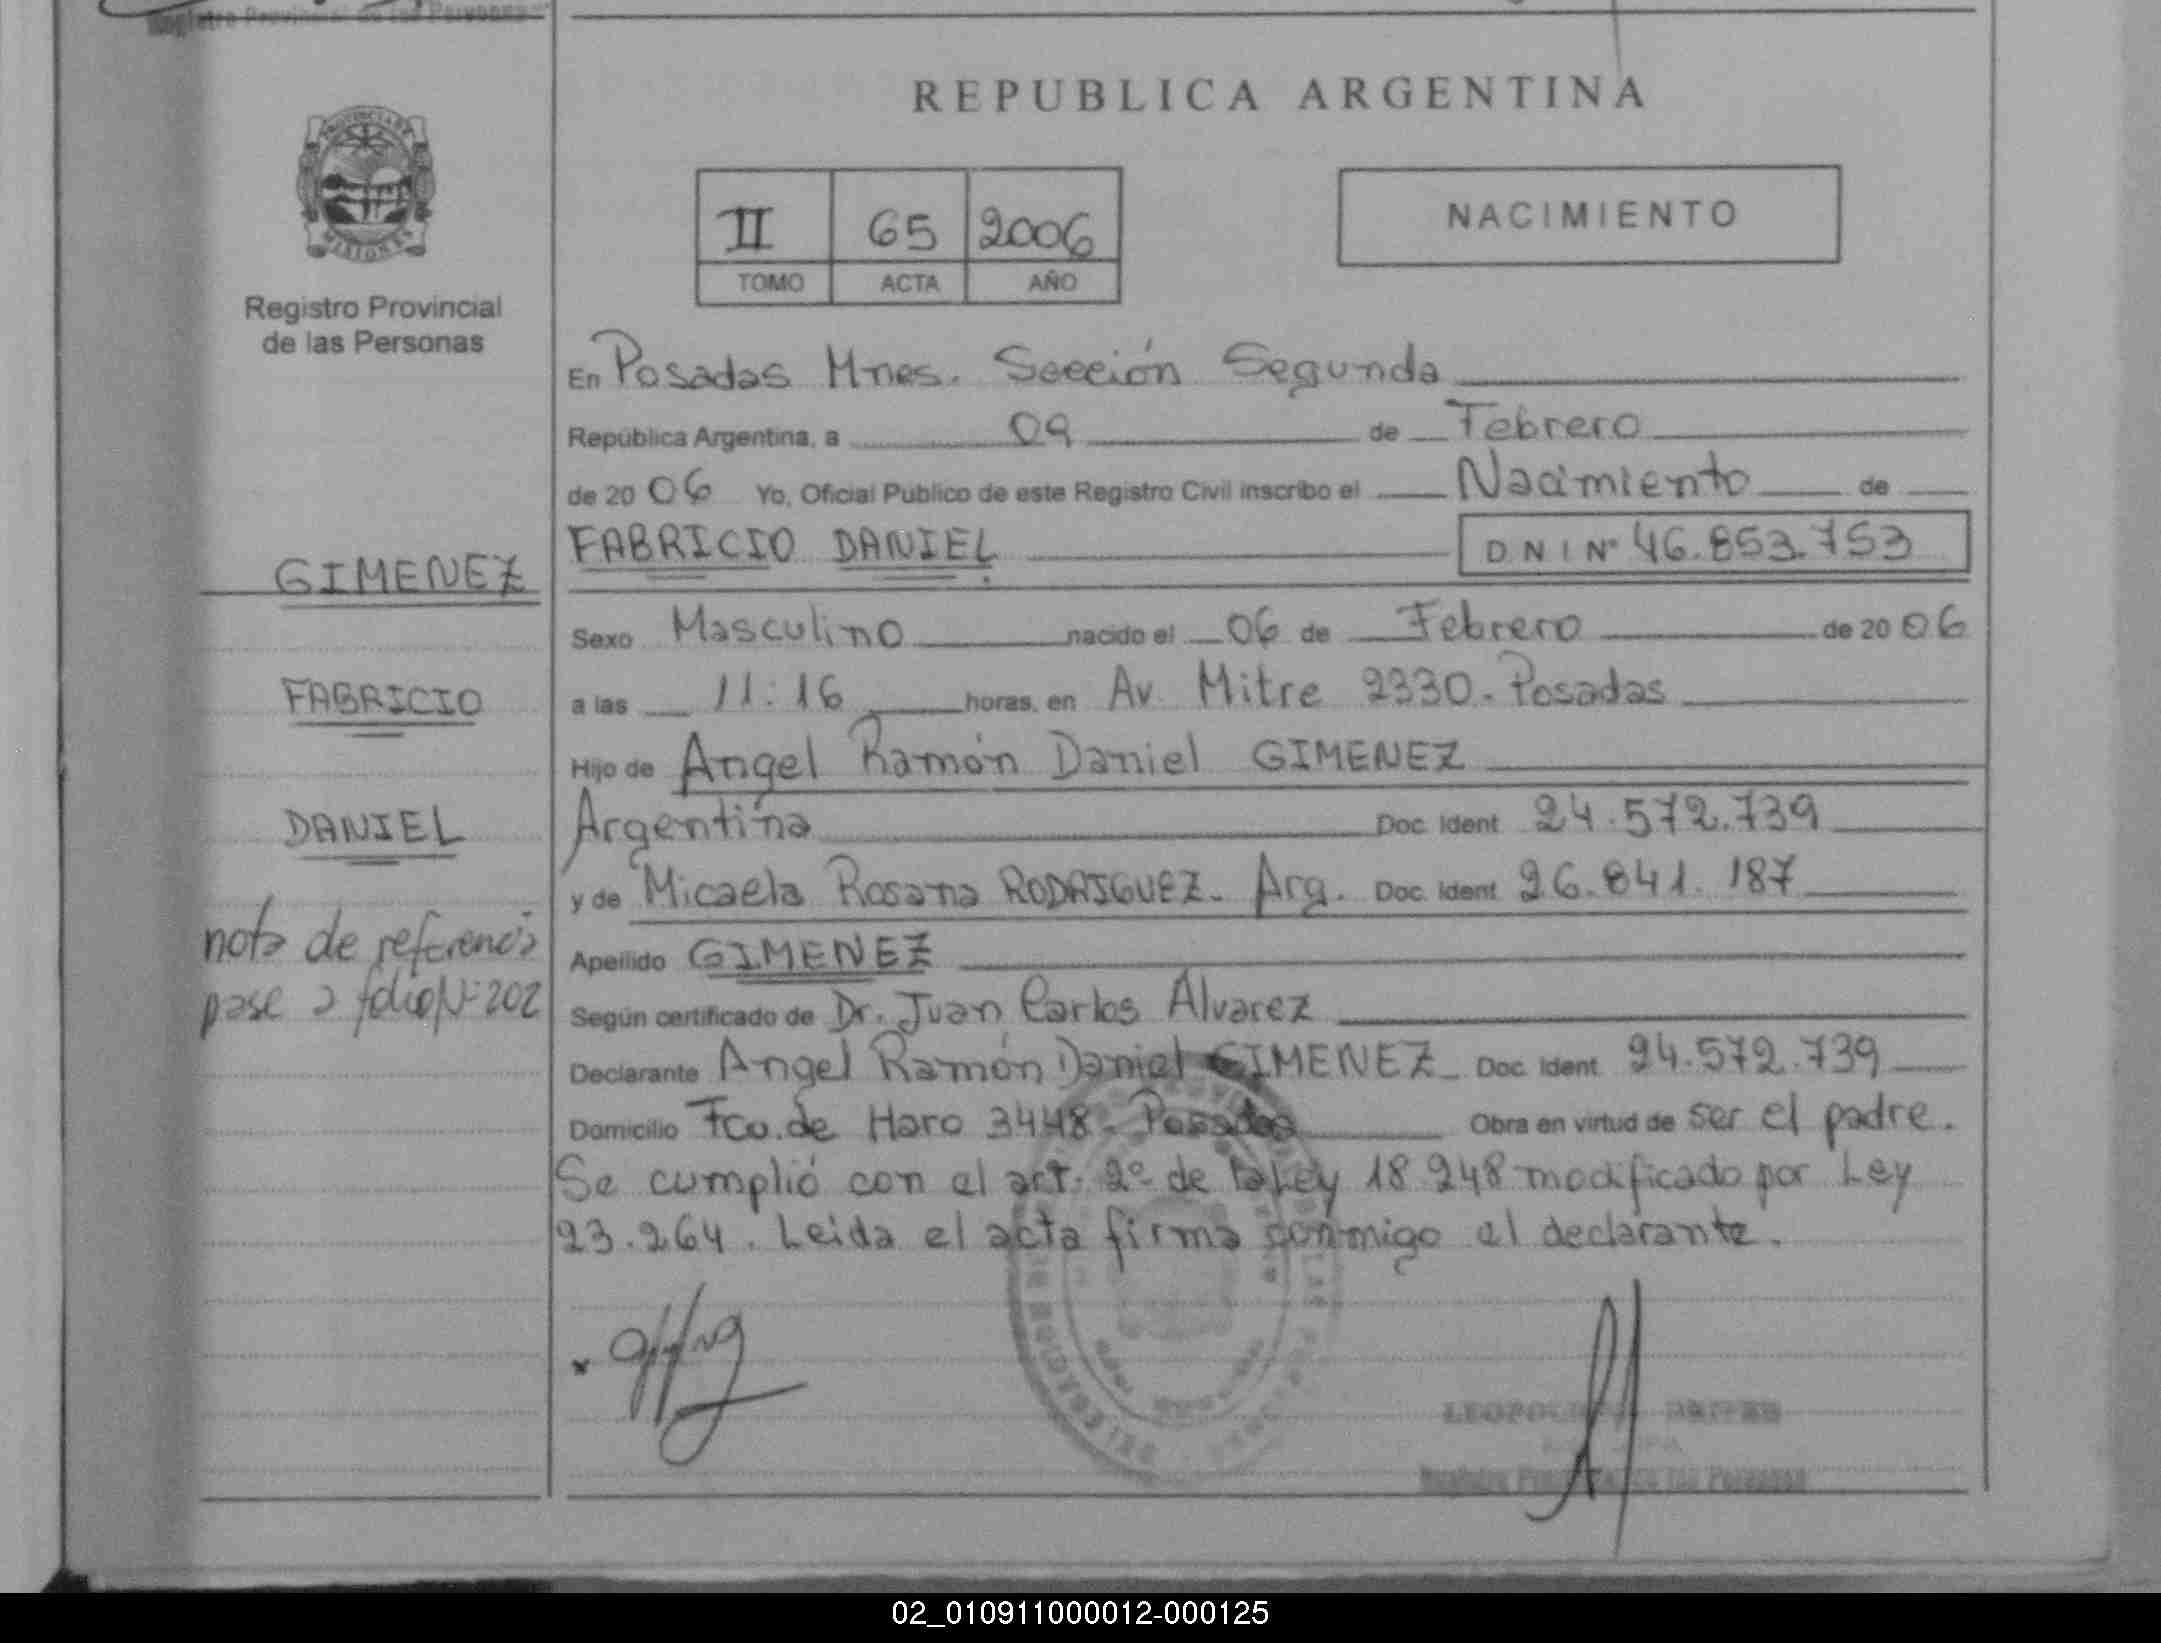 Registro Provincial de las Personas
REPUBLICA ARGENTINA
PROVINCIA DE
MISIONES
Registro Provincial
de las Personas
II 65 2006
TOMO ACTA AÑO
NACIMIENTO
En Posadas Mnes. Sección Segunda
República Argentina, a 09 de Febrero
de 2006 Yo, Oficial Público de este Registro Civil inscribo el Nacimiento de
FABRICIO DANIEL
D N I Nº 46.853.753
GIMENEZ
FABRICIO
DANIEL
nota de referencia
pase a folio Nº 202
Sexo Masculino nacido el 06 de Febrero de 2006
a las 11:16 horas, en Av. Mitre 2330 - Posadas
Hijo de Angel Ramón Daniel GIMENEZ
Argentina Doc. Ident. 24.572.739
y de Micaela Rosana RODRIGUEZ - Arg. Doc. Ident. 26.841.187
Apellido GIMENEZ
Según certificado de Dr. Juan Carlos Alvarez
Declarante Angel Ramón Daniel GIMENEZ - Doc. Ident. 24.572.739
Domicilio Fco. de Haro 3448 - Posadas Obra en virtud de ser el padre.
Se cumplió con el art. 2º de la Ley 18.248 modificado por Ley
23.264. Leida el acta firma conmigo el declarante.
Registro Provincial de las Personas
02_010911000012-000125